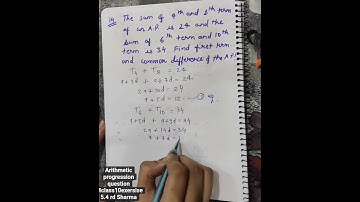 14 The sum of 4th and 8th term
of an A.P. is 24 and the
sum of 6th term and 10th
term is 34 Find first term
and common difference of the A.P.
T4 + T8 = 24
a+3d + a+7d = 24
2a+10d = 24
a+5d = 12 - ①
T6 + T10 = 34
a+5d + a+9d = 34
2a+14d = 34
a+7d =
Arithmetic
progression
question
#class10exersise
5.4 rd Sharma